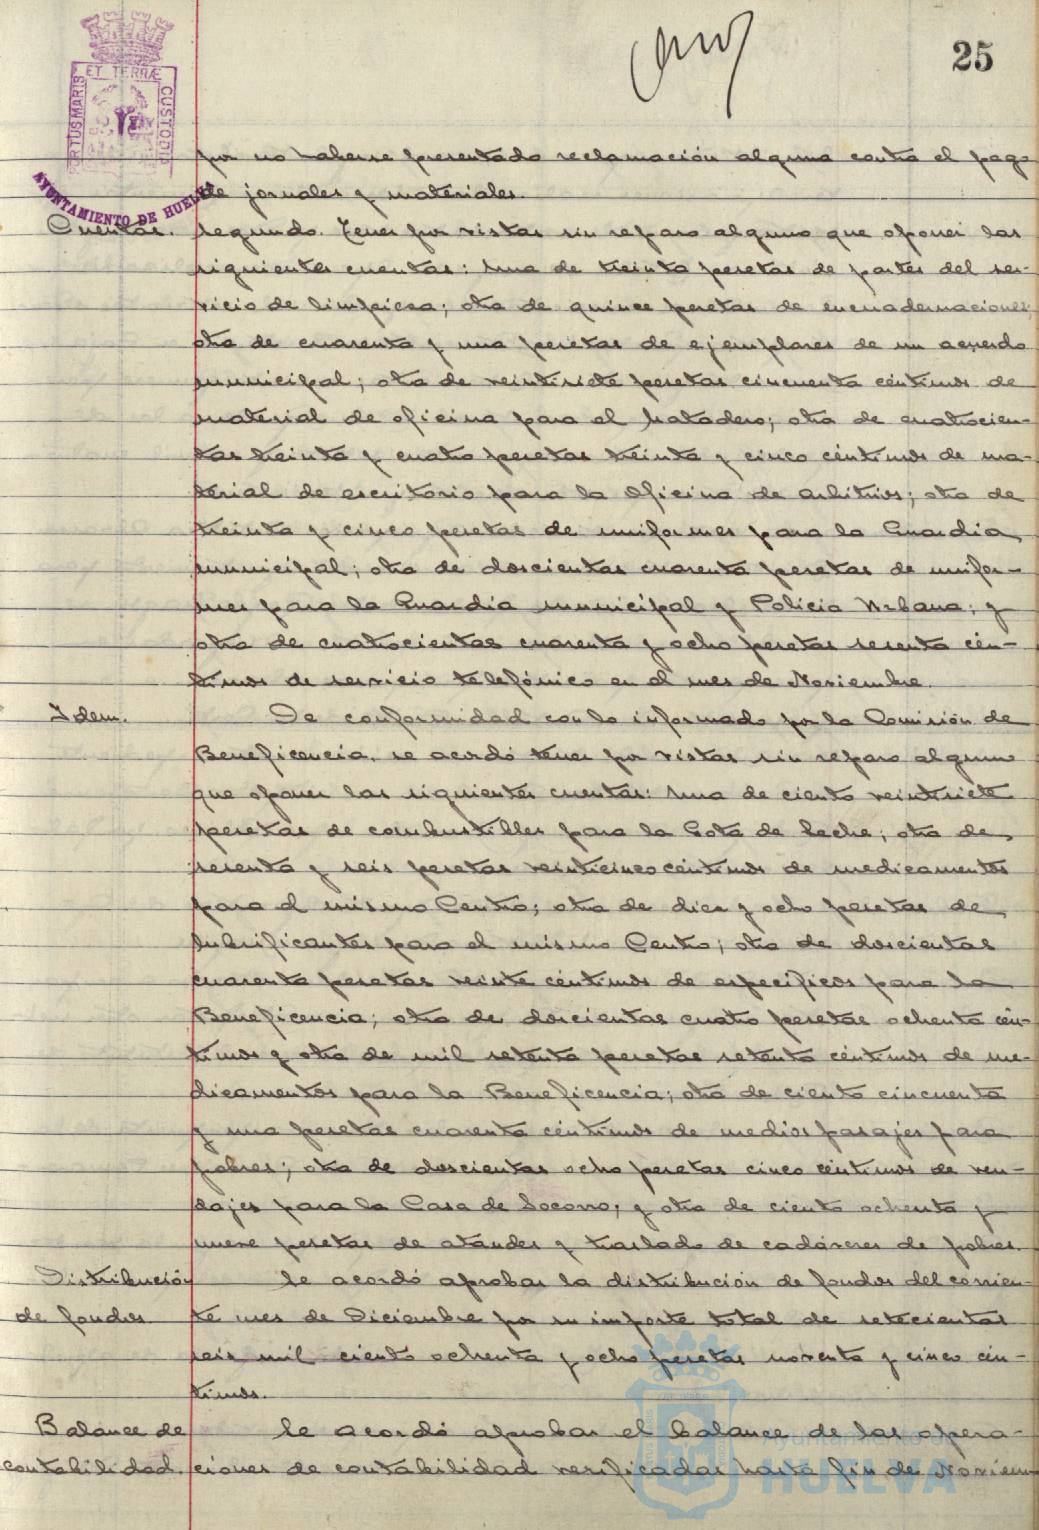 25
ET TERRÆ
PORTUS MARIS
CUSTODIA
AYUNTAMIENTO DE HUELVA
por no haberse presentado reclamación alguna contra el pago
de jornales y materiales.
Cuentas. Segundo. Tener por vistas sin reparo alguno que oponer las
siguientes cuentas: una de treinta pesetas de partes del ser-
vicio de limpieza; otra de quince pesetas de encuadernaciones;
otra de cuarenta y una pesetas de ejemplares de un acuerdo
municipal; otra de veintisiete pesetas cincuenta céntimos de
material de oficina para el Matadero; otra de cuatrocien-
tas treinta y cuatro pesetas treinta y cinco céntimos de ma-
terial de escritorio para la Oficina de Arbitrios; otra de
treinta y cinco pesetas de uniformes para la Guardia
municipal; otra de doscientas cuarenta pesetas de unifor-
mes para la Guardia municipal y Policia Urbana; y
otra de cuatrocientas cuarenta y ocho pesetas sesenta cén-
timos de servicio telefónico en el mes de Noviembre.
Idem. De conformidad con lo informado por la Comisión de
Beneficencia, se acordó tener por vistas sin reparo alguno
que oponer las siguientes cuentas: una de ciento veintisiete
pesetas de combustibles para la Gota de Leche; otra de
sesenta y seis pesetas veinticinco céntimos de medicamentos
para el mismo Centro; otra de diez y ocho pesetas de
lubrificantes para el mismo Centro; otra de doscientas
cuarenta pesetas veinte céntimos de específicos para la
Beneficencia; otra de doscientas cuatro pesetas ochenta cén-
timos y otra de mil setenta pesetas setenta céntimos de me-
dicamentos para la Beneficencia; otra de ciento cincuenta
y una pesetas cuarenta céntimos de medios pasajes para
pobres; otra de doscientas ocho pesetas cinco céntimos de ven-
dajes para la Casa de Socorro; y otra de ciento ochenta y
nueve pesetas de ataudes y traslado de cadáveres de pobres.
Distribución Se acordó aprobar la distribución de fondos del corrien-
de fondos te mes de Diciembre por su importe total de setecientas
seis mil ciento ochenta y ocho pesetas noventa y cinco cén-
timos.
Balance de Se acordó aprobar el balance de las opera-
contabilidad. ciones de contabilidad verificadas hasta fin de Noviem-
Ayuntamiento de
HUELVA